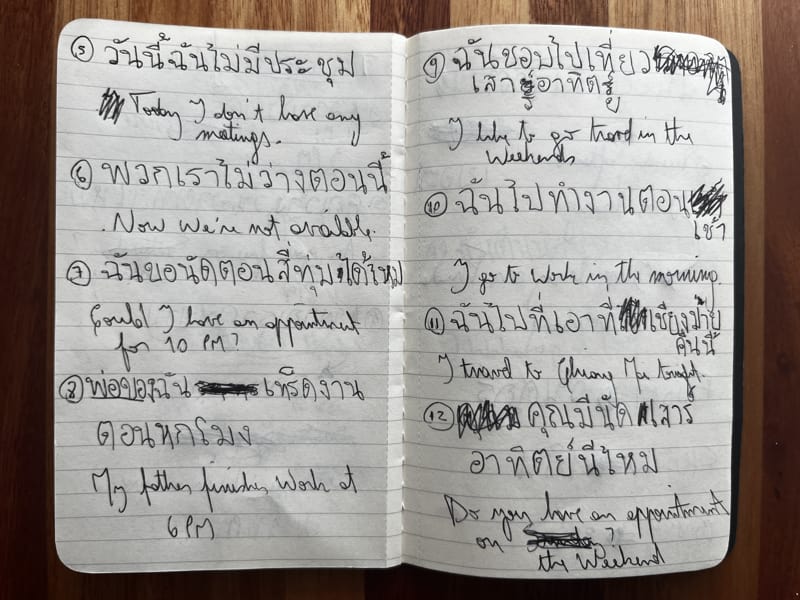 5 วันนี้ฉันไม่มีประชุม
Today I don't have any
meetings.
6 พวกเราไม่ว่างตอนนี้
Now we're not available.
7 ฉันขอนัดตอนสี่ทุ่มได้ไหม
Could I have an appointment
for 10 PM?
8 พ่อของฉัน เทร็ดงาน
ตอนหกโมง
My father finishes work at
6 PM
9 ฉันชอบไปเที่ยว
เสาร์อาทิตย์
I like to go travel in the
Weekends
10 ฉันไปทำงานตอน
เช้า
I go to work in the morning.
11 ฉันไปที่เอาที่ เชียงม่าย
คืนนี้
I travel to Chiang Mai tonight.
12 คุณมีนัด เสาร์
อาทิตย์นี้ไหม
Do you have an appointment
on ?
the Weekend